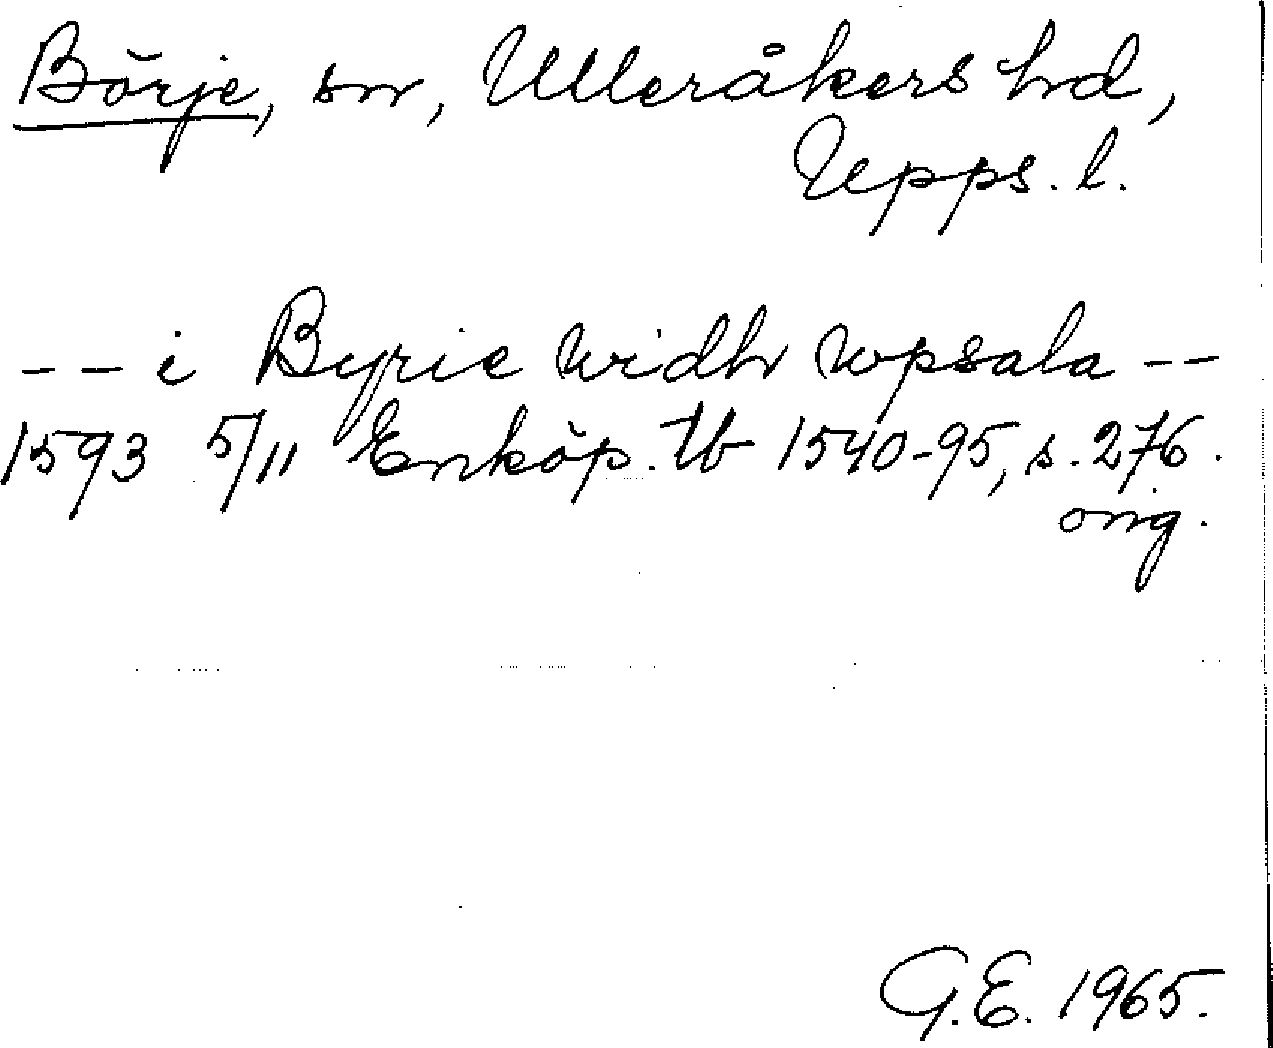 Börje, sn, Ulleråkers hd,
Upps. l.
-- i Byrie widh wpsala --
1593 5/11 Enköp. tb 1540-95, s. 276.
orig.
G.E. 1965.